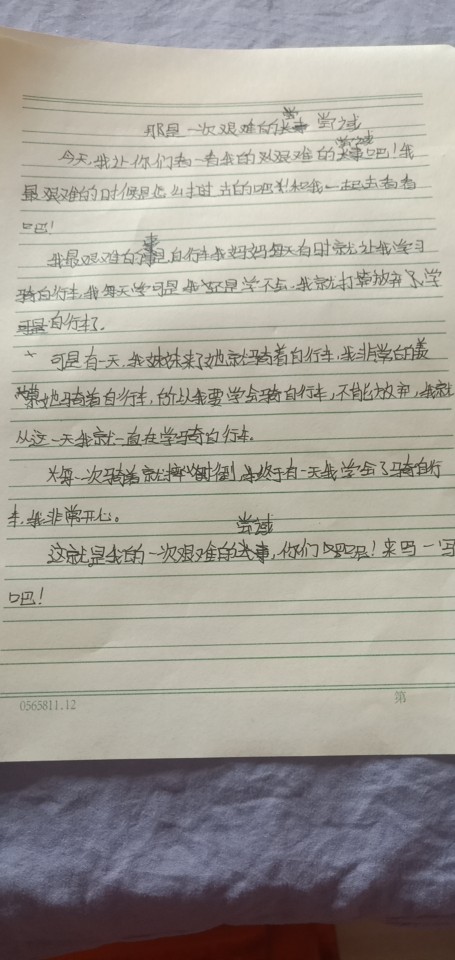 那是一次艰难的尝试
今天,我让你们看一看我的艰难的尝试吧!我
最艰难的时候是怎么时的吧!和我一起去看看
吧!
我最艰难的事是自行车我妈妈每天有时就让我学习
骑自行车,我每天学可是我还是学不会.我就打算放弃了学
自行车了.
可是有一天,我妹妹来了她就骑着自行车,我非常的羡
慕她骑着自行车,所以我要学会骑自行车,不能放弃,我就
从这一天我就一直在学骑自行车.
每一次骑着就摔倒,我终于有一天我学会了骑自行
车,我非常开心。
这就是我的一次艰难的尝试,你们呢!来写一写
吧!
0565811.12
第